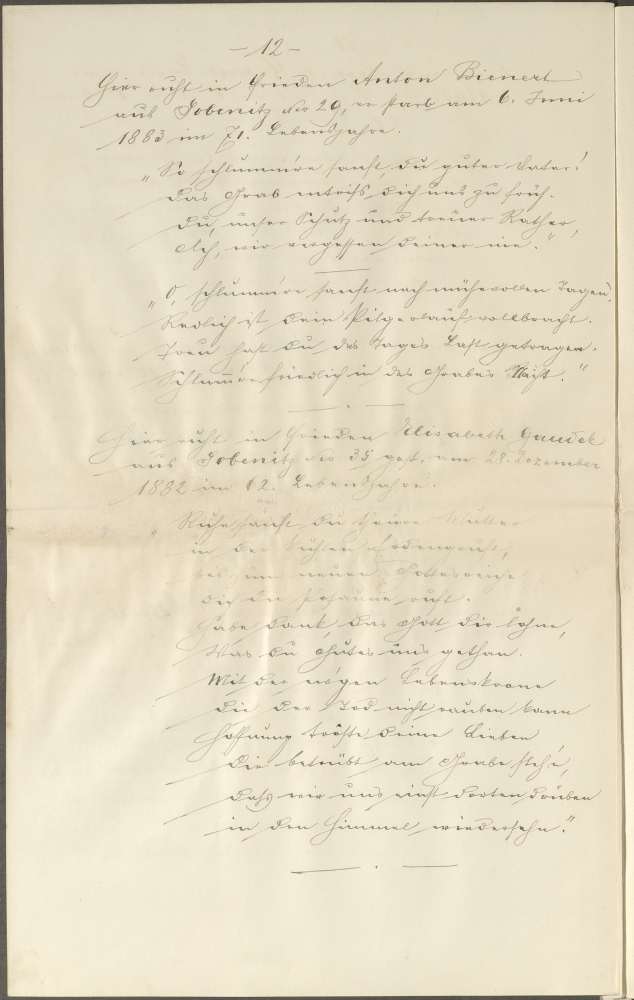 - 12 -
Hier ruht in Frieden Anton Bienert
aus Jobenitz No 29, er starb am 6. Juni
1883 im 71. Lebensjahre.
„So schlumm're sanft, du guter Vater!
Das Grab entriss dich uns zu früh.
Du, unser Schutz und treuer Rather,
Ach, wir vergessen deiner nie."
„O, schlumm're sanft nach mühevollen Tagen,
Redlich ist dein Pilgerlauf vollbracht.
Treu hast du des Tages Last getragen.
Schlumm're friedlich in des Grabes Nacht."
Hier ruht in Frieden Elisabeth Gaudek
aus Jobenitz No 35 gest. am 28. Dezember
1882 im 62. Lebensjahre.
„Ruhe sanft du theure Mutter
in der kühlen Erdengruft,
bis zum neuen Gottesreiche
dir die Posaune ruft.
Habe Dank, das Gott dir lohne,
Was du Gutes uns gethan.
Mit der ew'gen Lebenskrone
die der Tod nicht rauben kann
Hoffnung tröste deine Lieben
die betrübt am Grabe steh'n,
dass wir uns einst dorten drüben
in dem Himmel wiedersehn."